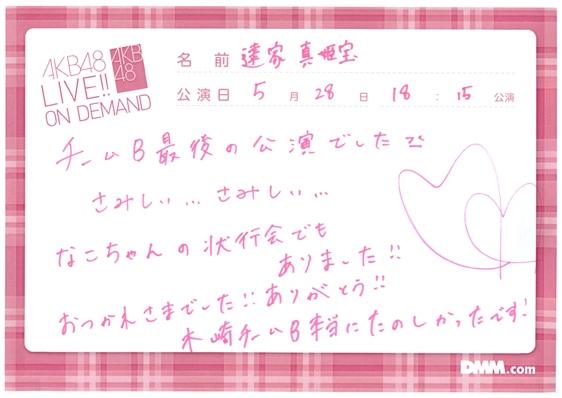 AKB48
LIVE!!
ON DEMAND
AKB
48
名前 達家 真姫宝
公演日 5月28日 18:15 公演
チームB最後の公演でした
さみしい… さみしい…
なこちゃんの状行会でも
ありました!!
おつかれさまでした!! ありがとう!!
木崎チームB本当にたのしかったです!
DMM.com